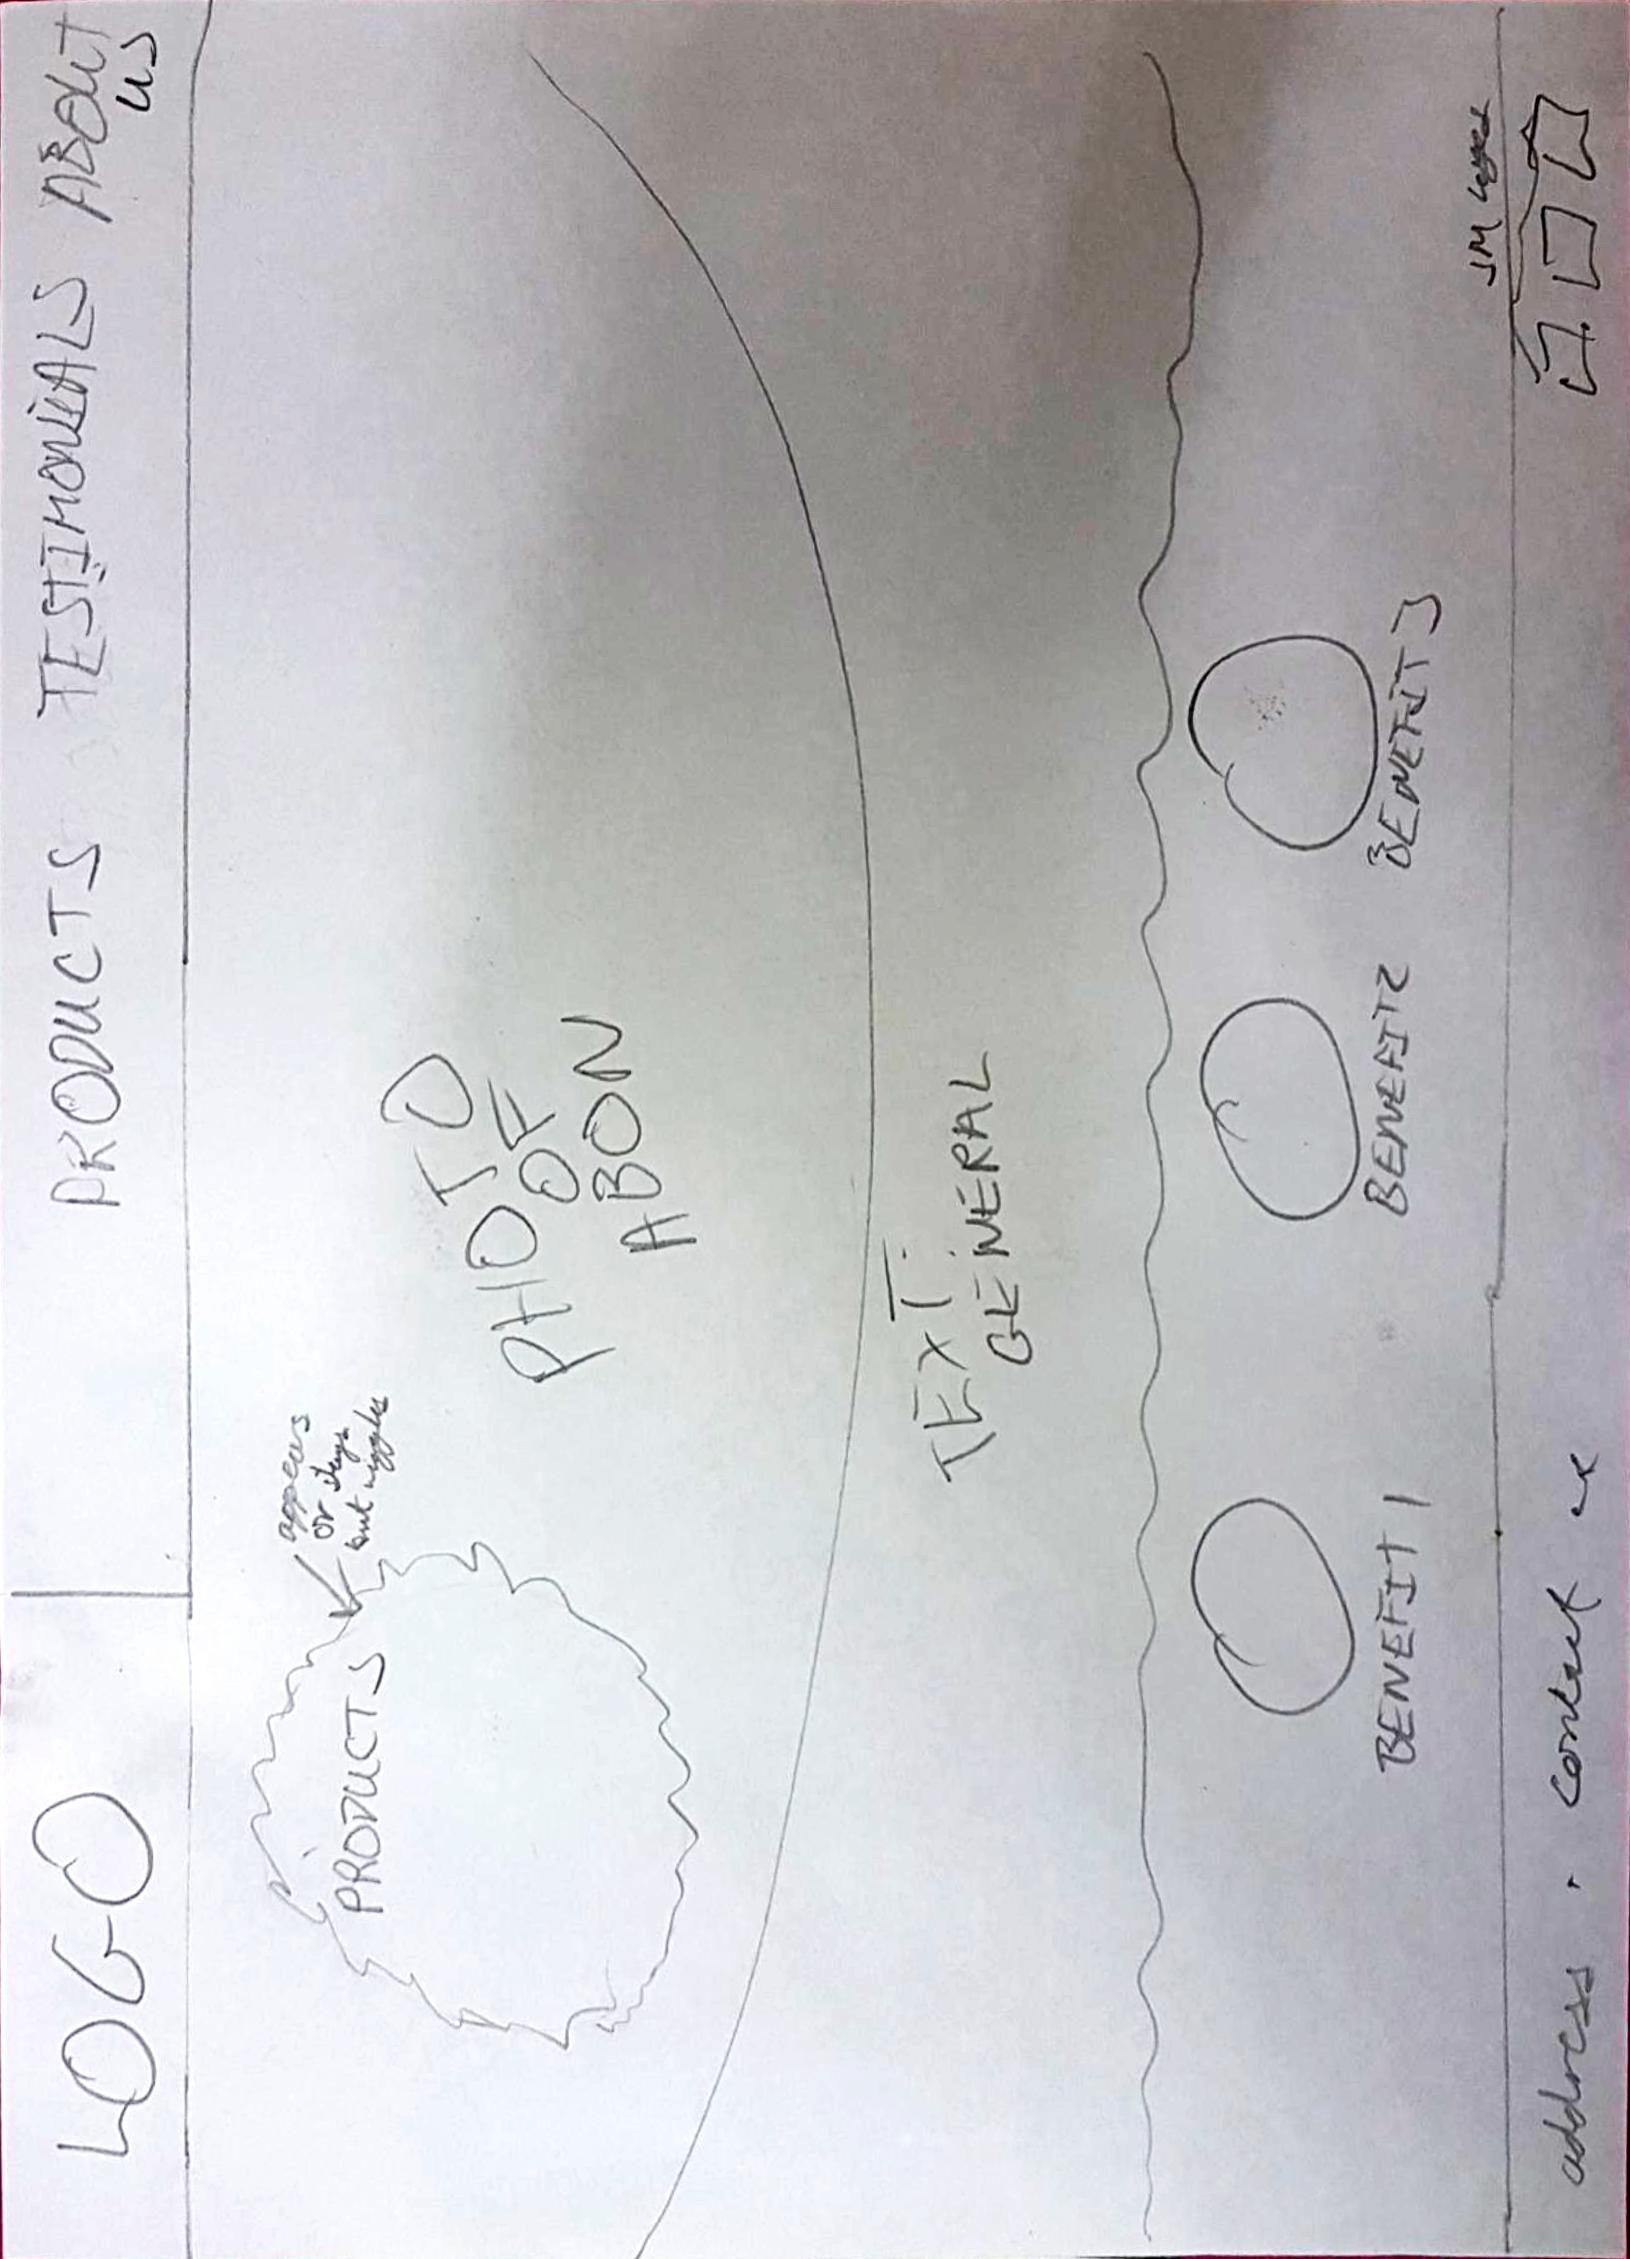 LOGO
PRODUCTS TESTIMONIALS ABOUT
US
PRODUCTS
appears
or stays
but wiggles
PHOTO
OF
ABON
TEXT:
GENERAL
BENEFIT 1 BENEFIT2 BENEFIT 3
SM logos
address . contact us